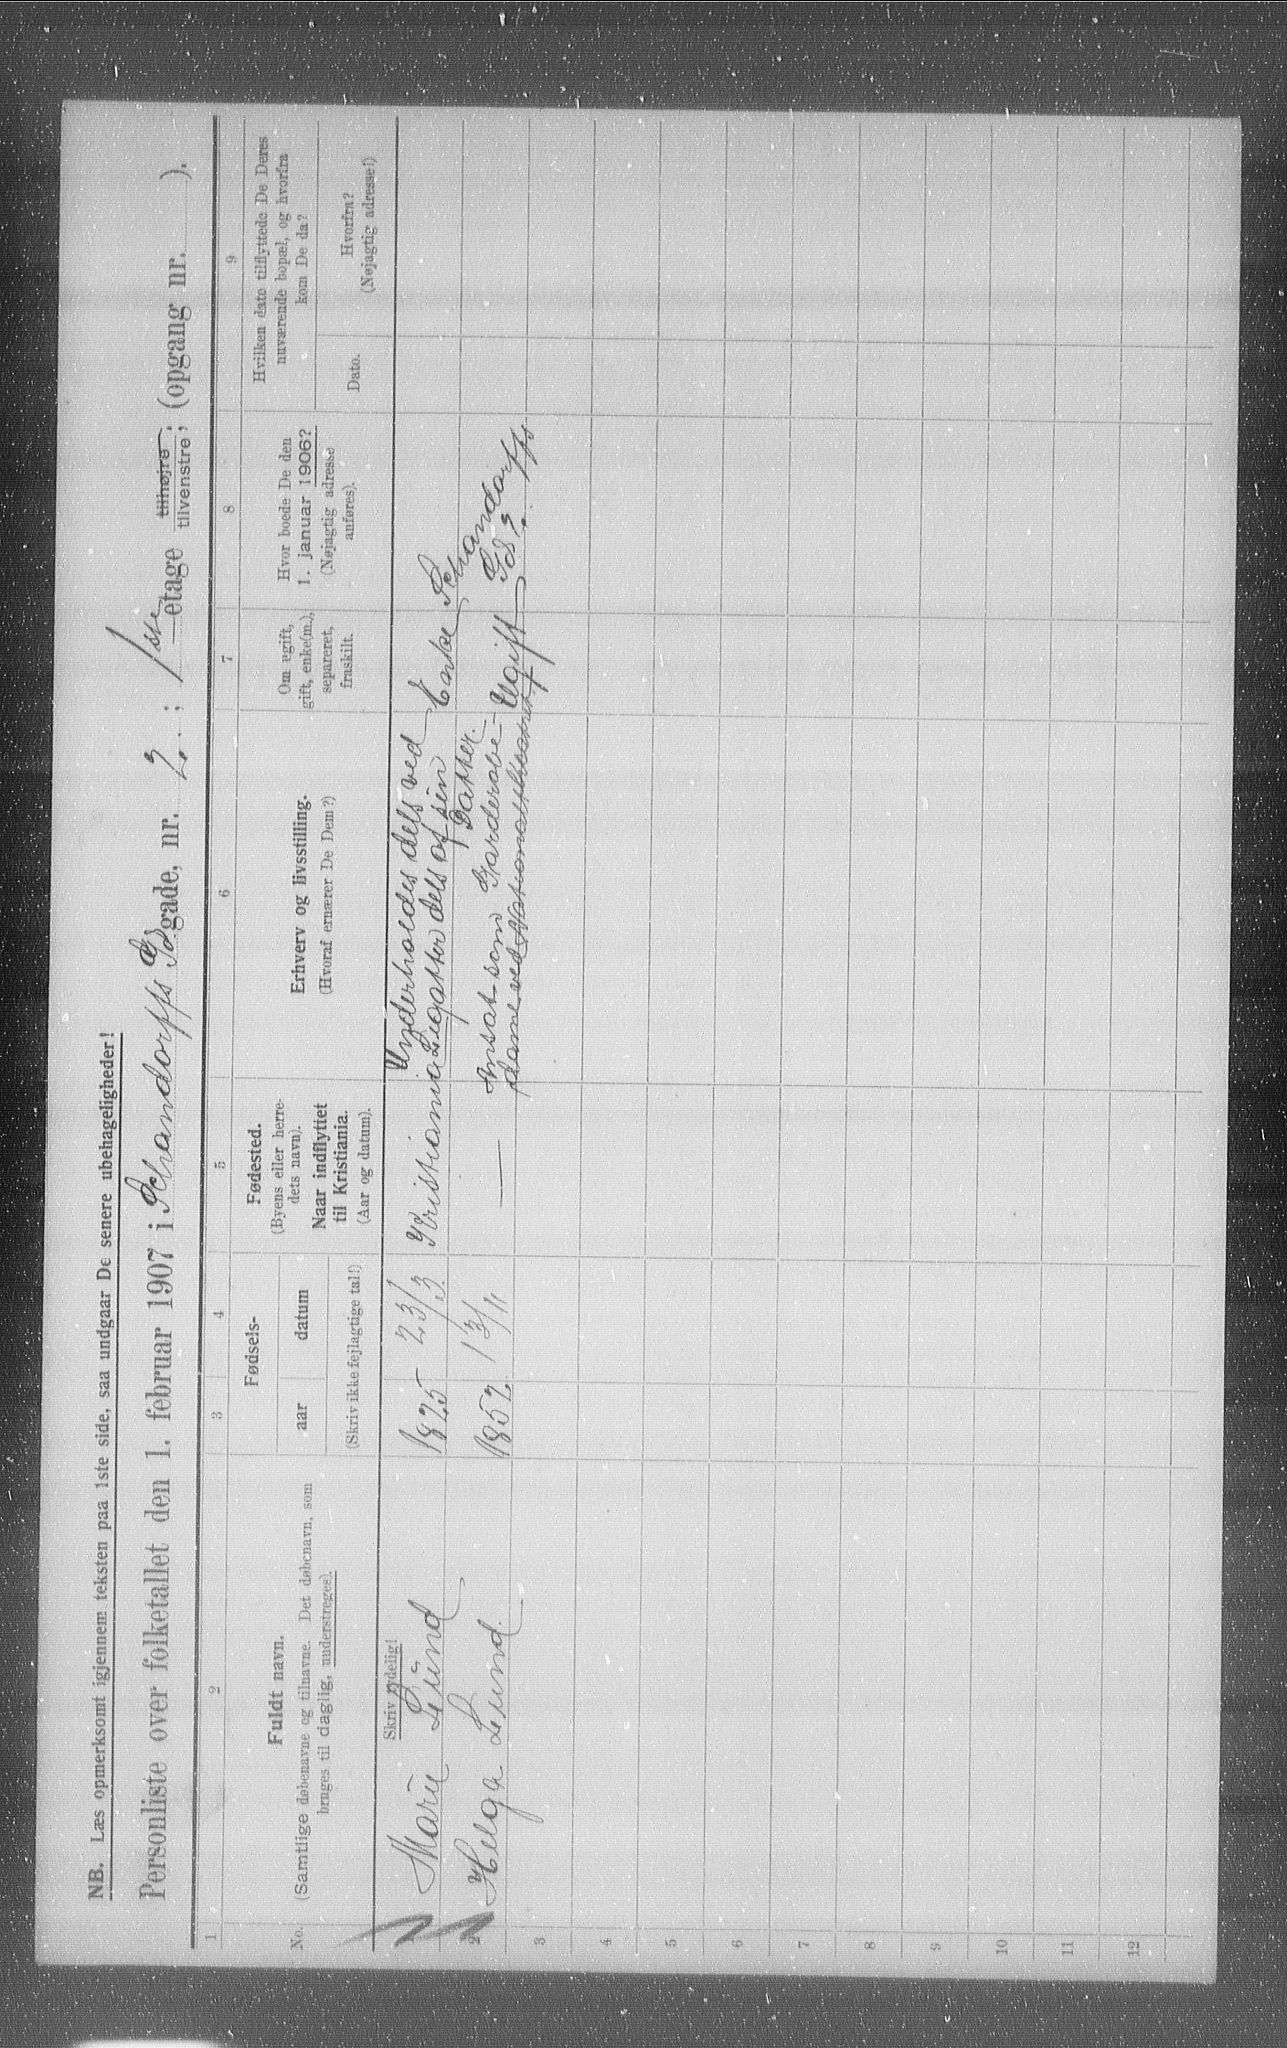 NB. Læs opmerksomt igjennem teksten paa 1ste side, saa undgaar De senere ubehageligheder!
Personliste over folketallet den 1. februar 1907 i Schandorffs Gd. gade, nr. 2. ; 1ste etage tilhøjre, tilvenstre; (opgang nr. ).
1 2 3 4 5 6 7 8 9
No.
Fuldt navn.
(Samtlige døbenavne og tilnavne. Det døbenavn, som
bruges til daglig, understreges).
Fødsels-
aar datum
(Skriv ikke fejlagtige tal!)
Fødested.
(Byens eller herre-
dets navn).
Naar indflyttet
til Kristiania.
(Aar og datum).
Erhverv og livsstilling.
(Hvoraf ernærer De Dem?)
Om ugift,
gift, enke(m.),
separeret,
fraskilt.
Hvor boede De den
1. januar 1906?
(Nøjagtig adresse
anføres).
Hvilken dato tilflyttede De Deres
nuværende bopæl, og hvorfra
kom De da?
Dato.
Hvorfra?
(Nøjagtig adresse!)
Skriv tydelig!
1 Marie Lund 1825 23/3 Kristiania Underholdes dels ved
Legater dels af sin
Datter. Enke Schandorffs
Gd 2.
2 Helga Lund. 1852 13/11 — Ansat som Garderobe-
dame ved Nationaltheatret Ugift
3
4
5
6
7
8
9
10
11
12